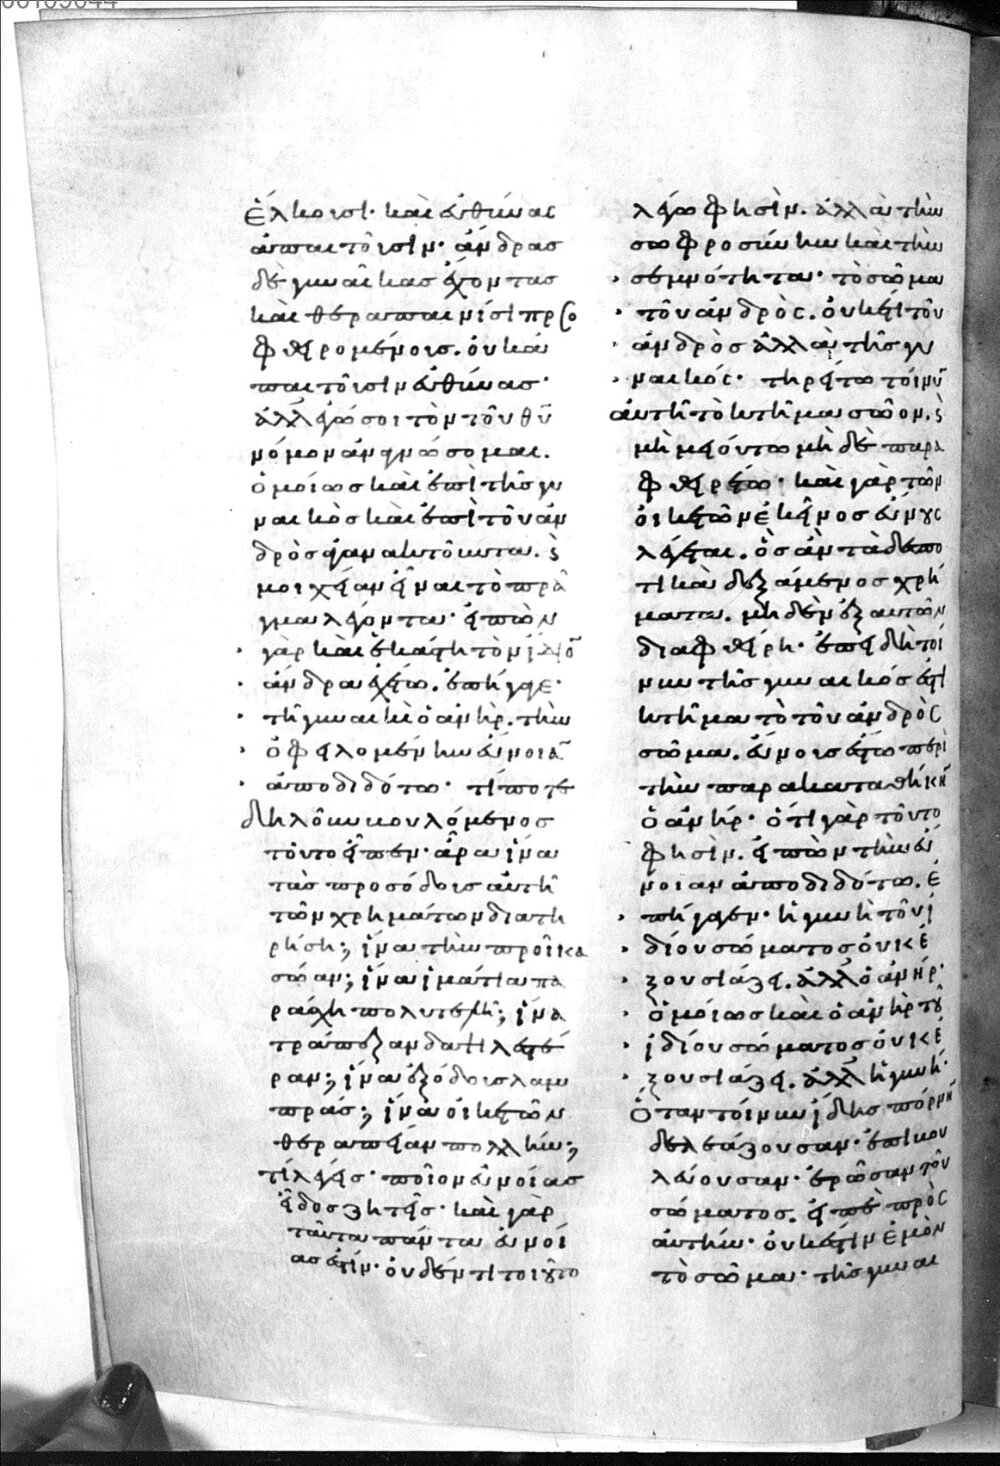 ἕλκουσι· καὶ εὐθύνας
ἀπαιτοῦσιν· ἄνδρας
δὲ γυναῖκας ἔχοντας
καὶ θεραπαινίσι προσ
φθειρομένους. οὐκ ἀ
παιτοῦσιν εὐθύνας·
ἀλλ' ἐγώ σοι τὸν τοῦ θῦ
νόμον ἀναγνώσομαι.
ὁμοίως καὶ ἐπὶ τῆς γυ
ναικὸς καὶ ἐπὶ τοῦ ἀν
δρὸς ἀγανακτοῦντα. καὶ
μοιχείαν εἶναι τὸ πρᾶ
γμα λέγοντα· εἰπὼν
γὰρ καὶ ἑκάστη τὸν ἴδιον
ἄνδρα ἐχέτω. ἐπήγαγε·
τῆ γυναικὶ ὁ ἀνὴρ. τὴν
ὀφειλομένην εὔνοιαν
ἀποδιδότω· τί ποτε
δηλοῦν βουλόμενος
τοῦτο εἶπεν· ἆρα ἵνα
τὰς προσόδους αὐτῆ
τῶν χρημάτων διατη
ρήση; ἵνα τὴν προῖκα
σώαν; ἵνα ἱμάτια πα
ράσχη πολυτελῆ; ἵνα
τράπεζαν δαψιλεστέ
ραν; ἵνα ἐξόδους λαμ
πράς; ἵνα οἰκετῶν
θεραπείαν πολλήν;
τί λέγεις· ποῖον εὐνοίας
εἶδος ζητεῖς· καὶ γὰρ
ταῦτα πάντα εὐνοί
ας ἐστίν· οὐδέν τι τοιοῦτο
λέγω φησὶν. ἀλλὰ τὴν
σωφροσύνην καὶ τὴν
σεμνότητα· τὸ σῶμα
τοῦ ἀνδρὸς. οὐκέτι τοῦ
ἀνδρὸς ἀλλὰ τῆς γυ
ναικός· τηρείτω τοίνῦ
αὐτῆ τὸ κτῆμα σῶον. καὶ
μὴ μειούτω μὴ δὲ παρα
φθειρέτω· καὶ γὰρ τῶν
οἰκετῶν ἐκεῖνος εὔνους
λέγεται. ὃς ἂν τὰ δεσπο
τικὰ δεξάμενος χρή
ματα. μηδὲν ἐξ αὐτῶν
διαφθείρη· ἐπειδὴ τοί
νυν τῆς γυναικός ἐστι
κτῆμα τὸ τοῦ ἀνδρὸς
σῶμα. εὔνους ἔστω περὶ
τὴν παρακαταθήκην
ὁ ἀνήρ· ὅτι γὰρ τοῦτο
φησὶν. εἰπὼν τὴν εὔ
νοιαν ἀποδιδότω. ἐ
πήγαγεν· ἡ γυνὴ τοῦ ἰ
δίου σώματος οὐκ ἐ
ξουσιάζει. ἀλλ' ὁ ἀνήρ·
ὁμοίως καὶ ὁ ἀνὴρ τοῦ
ἰδίου σώματος οὐκ ἐ
ξουσιάζει. ἀλλ' ἡ γυνή·
Ὅταν τοίνυν ἴδης πόρνην
δελεάζουσαν· ἐπιβου
λεύουσαν· ἐρῶσαν τοῦ
σώματος. εἰπὲ πρὸς
αὐτήν· οὐκ ἔστιν ἐμὸν
τὸ σῶμα· τῆς γυναι